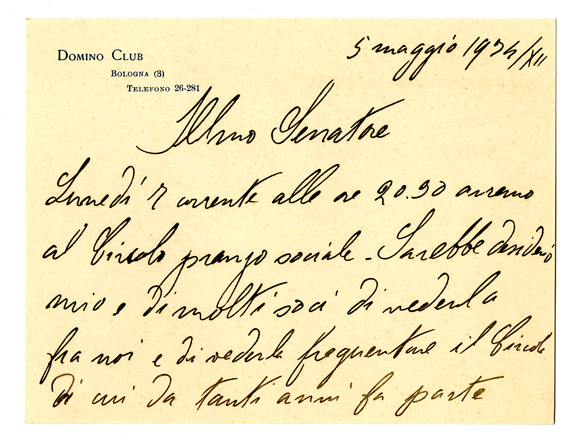 Domino Club
Bologna (3)
Telefono 26-281
5 maggio 1934/XII
Illmo Senatore
Lunedì 7 corrente alle ore 20.30 avremo
al Circolo pranzo sociale - Sarebbe desiderio
mio e di molti soci di vederla
fra noi e di vederla frequentare il Circolo
di cui da tanti anni fa parte